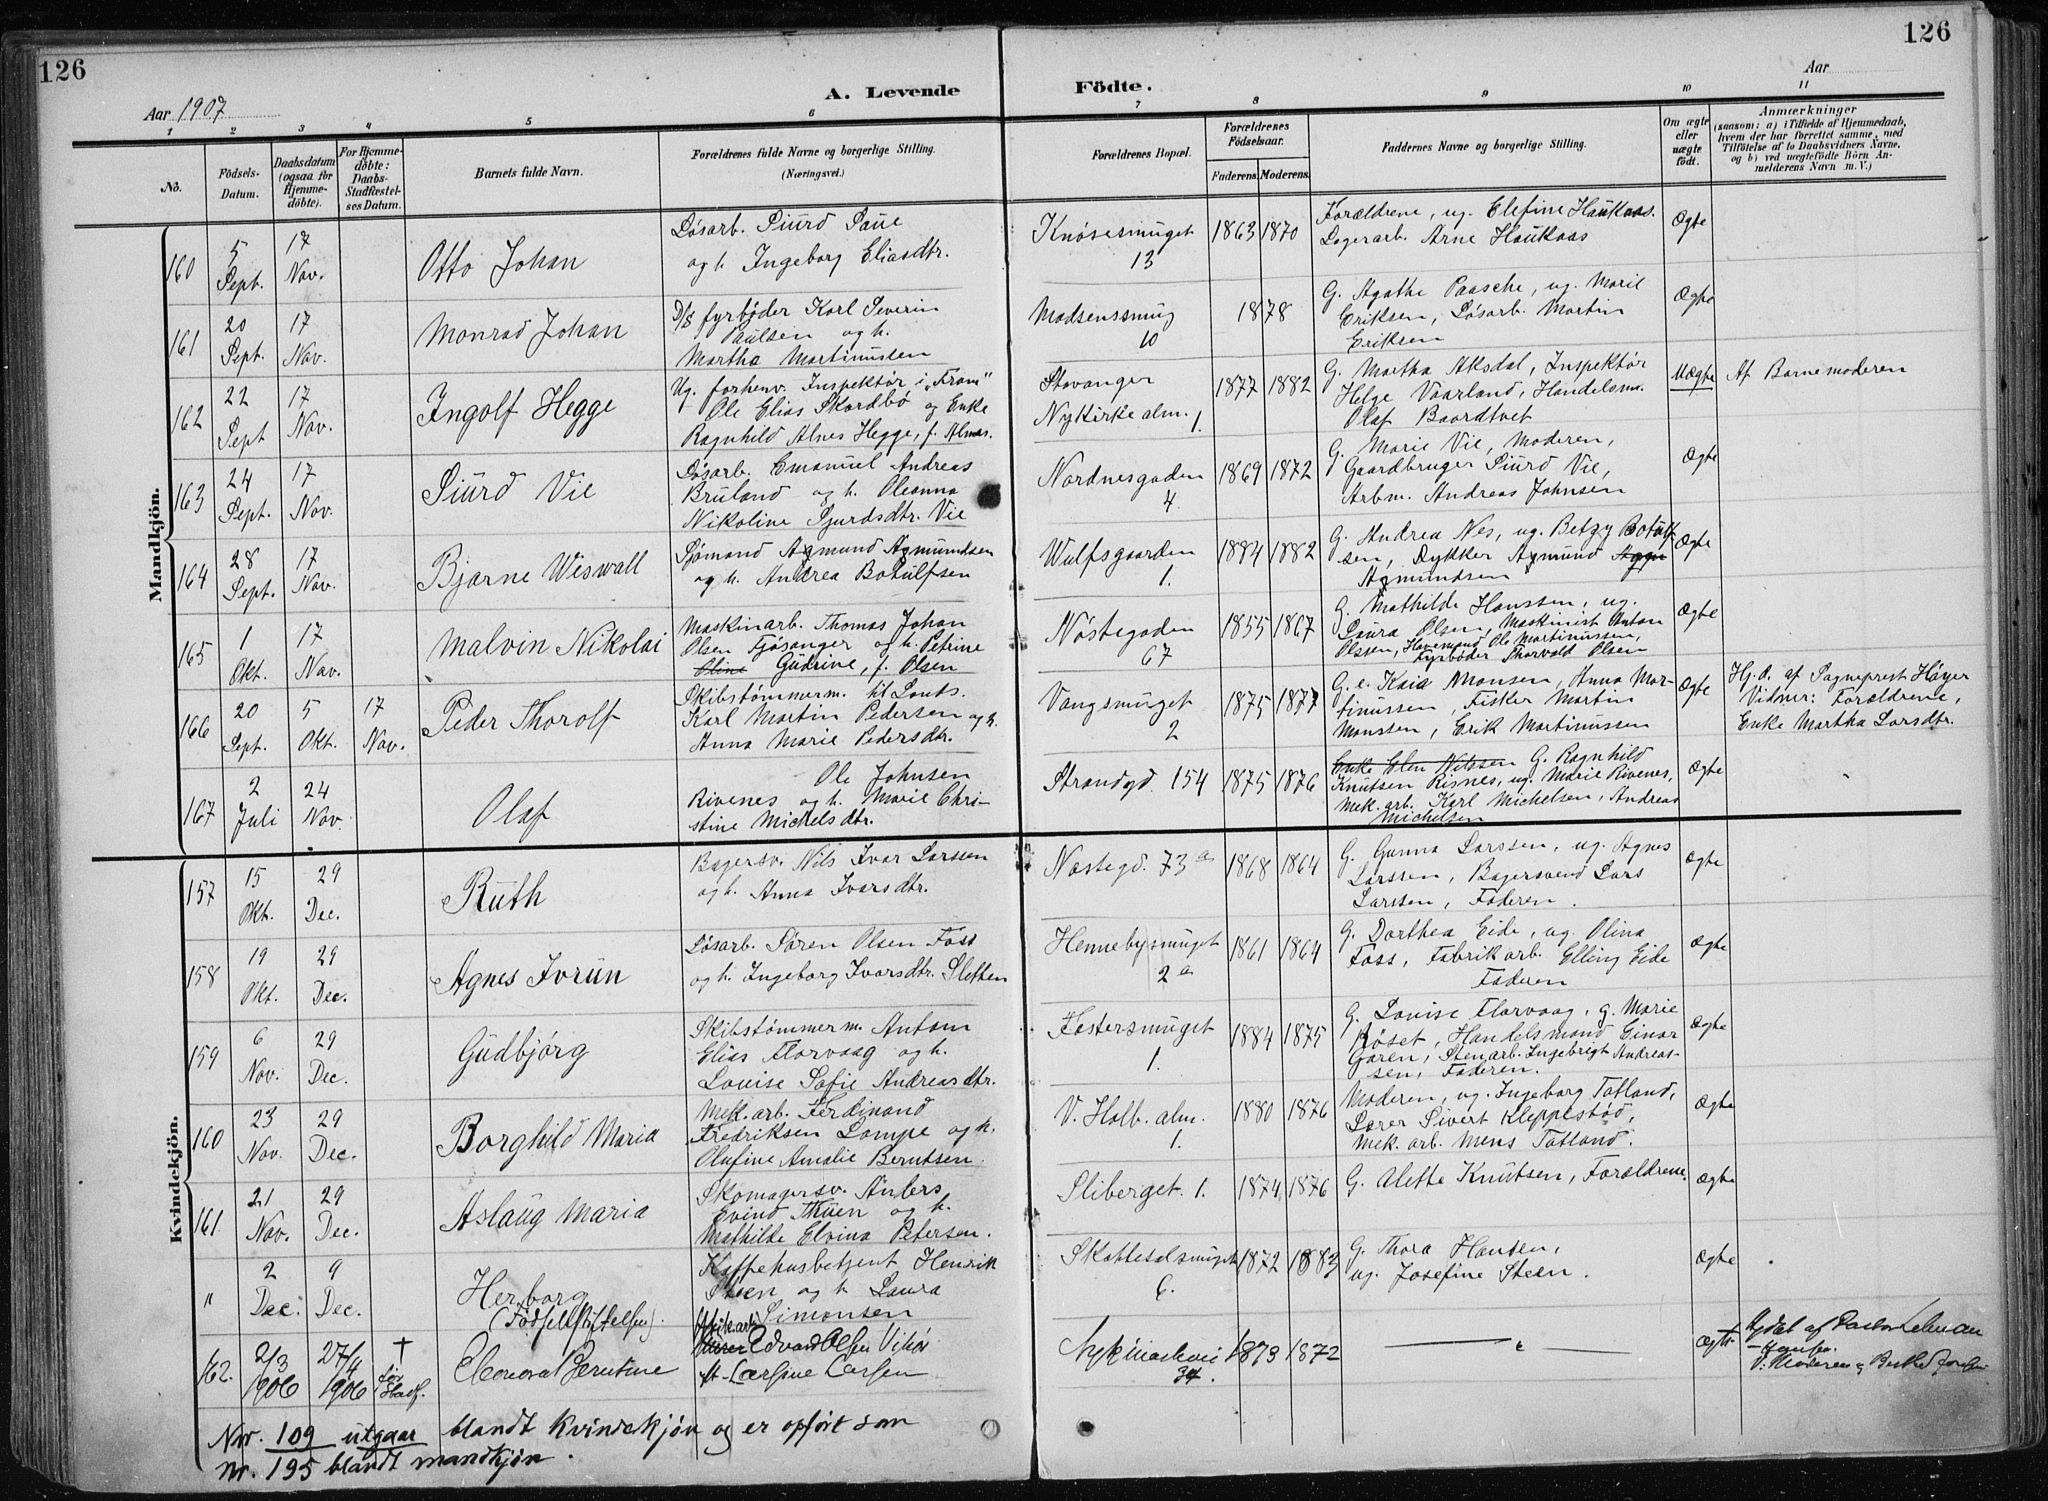 126
126
Aar 1907
A. Levende
Födte.
Aar
1 2 3 4 5 6 7 8 9 10 11
No.
Födsels-Datum.
Daabsdatum (ogsaa for Hjemme-döbte).
For Hjemme-döbte: Daabs-Stadfæstel-ses Datum.
Barnets fulde Navn.
Forældrenes fulde Navne og borgerlige Stilling.
(Næringsvei.)
Forældrenes Bopæl.
Forældrenes Födselsaar.
Faderens. Moderens.
Faddernes Navne og borgerlige Stilling.
Om ægte eller uægte födt.
Anmærkninger
(saasom: a) i Tilfælde af Hjemmedaab, hvem der har forrettet samme, med Tilföielse af to Daabsvidners Navne, og b) ved uægtefödte Börn An-melderens Navn m. V.)
Mandkjön.
160
5 Sept.
17 Nov.
Otto Johan
Løsarb. Siurd Saue
og h. Ingeborg Eliasdtr.
Knøsesmuget
13
1863 1870
Forældrene, ug. Elefine Haukaas.
Lagerarb. Arne Haukaas
Ægte
161
20 Sept.
17 Nov.
Monrad Johan
D/S fyrbøder Karl Severin
Paulsen og h.
Martha Martinussen
Madsenssmug
10
1878
G. Agathe Paasche, ug. Marie
Eriksen, Løsarb. Martin
Eriksen
Ægte
162
22 Sept
17 Nov.
Ingolf Hegge
Ug. forhenv. Inspektør i "Fram"
Ole Elias Skordbø og Enke
Ragnhild Alnes Hegge, f. Alnæs.
Stavanger
Nykirke alm. 1.
1877 1882
G. Martha Aksdal, Inspektør
Helge Vaarland, Handelsm.
Olaf Baardtvet
Uægte
Af Barnemoderen
163
24 Sept.
17 Nov.
Siurd Vie
Løsarb. Emanuel Andreas
Bruland og h. Oleanna
Nikoline Sjurdsdtr. Vie
Nordnesgaden
4.
1869 1872
G. Marie Vie, Moderen,
Gaardbruger Siurd Vie,
Arbm. Andreas Johnsen
Ægte
164
28 Sept.
17 Nov.
Bjarne Wiswall
Sømand Agmund Agmundsen
og h. Andrea Botulfsen
Wulfsgaarden
1.
1884 1882
G. Andrea Nes, ug. Betzy Botulf-
sen, Dykker Agmund
Agmundsen
Ægte
165
1 Okt.
17 Nov.
Malvin Nikolai
Maskinarb. Thomas Johan
Olsen Fjøsanger og h. Petrine
Oline Gudrine, f. Olsen
Nøstegaden
67
1855 1867
G. Mathilde Hanssen, ug.
Laura Olsen, Maskinist Anton
Olssen, Havemand Ole Martinussen,
Fyrbøder Thorvald Olsen
Ægte
166
20 Sept.
5 Okt.
17 Nov.
Peder Thorolf
Skibstømmerm. til Louts.
Karl Martin Pedersen og h.
Anna Marie Pedersdtr.
Vangsmuget
2
1875 1877
G. e. Kaia Monsen, Anna Mar-
tinussen, Fisker Martin
Monssen, Erik Martinussen
Ægte
Hj. d. af Sogneprest Høyer
Vidner: Forældrene,
Enke Martha Larsdtr.
167
2 Juli
24 Nov.
Olaf
Ole Johnsen
Rivenes og h. Marie Chri-
stine Michelsdtr.
Strandgd. 154
1875 1876
Enke Elen Nilssen G. Ragnhild
Knutsen Risnes, ug. Marie Rivenes,
Mek. arb. Karl Michelsen, Andreas
Michelsen
Ægte
Kvindekjön.
157
15 Okt.
29 Dec.
Ruth
Bagersv. Nils Ivar Larssen
og h. Anna Ivarsdtr.
Nøstegd. 73 a
1868 1864
G. Gunna Larssen, ug. Agnes
Larssen, Bagersvend Lars
Larssen, Faderen.
Ægte
158
19 Okt.
29 Dec.
Agnes Jorun
Løsarb. Søren Olsen Foss
og h. Ingeborg Ivarsdtr. Sletten
Hennebysmuget
2 a
1861 1864
G. Dorthea Eide, ug. Olina
Foss, Fabrikarb. Elling Eide
Faderen
Ægte
159
6 Nov.
29 Dec.
Gudbjørg
Skibstømmerm. Antom
Elias Florvaag og h.
Louise Sofie Andreasdtr.
Fostersmuget
1.
1884 1875
G. Louise Florvaag, g. Marie
Røset, Handelsmand Einar
Garen, Stenarb. Ingebrigt Andreas-
sen, Faderen.
Ægte
160
23 Nov.
29 Dec.
Borghild Maria
Mek. arb. Ferdinand
Fredriksen Lampe og h.
Olufine Amalie Berntsen.
V. Holb. alm.
1.
1880 1876
Moderen, ug. Ingeborg Tatland,
Lærer Sivert Kleppestød,
Mek. arb. Mens Tatland.
Ægte
161.
21 Nov.
29 Dec.
Aslaug Maria
Skomagersv. Anders
Evind Thuen og h.
Mathilde Elvina Petersen.
Sliberget. 1.
1874 1876
G. Alette Knutsen, Forældrene.
Ægte
"
2 Dec.
9 Dec.
Herborg
(Födselsstiftelsen).
Kaffehusbetjent Henrik
Steen og h. Laura
Simonsen
Skottesalsmuget
6.
1872 1883
G. Thora Hansen,
ug. Josefine Steen.
Ægte
162.
2/3 1906
27/4 1906
† før Stadf.
Eleonora Berntine
Edvard Olsen
Larsen
34.
1873 1872
— " —
Ægte
Nr. 109 utgaar blandt Kvindekjøn og er opført som
nr. 195 blandt mandkjøn.